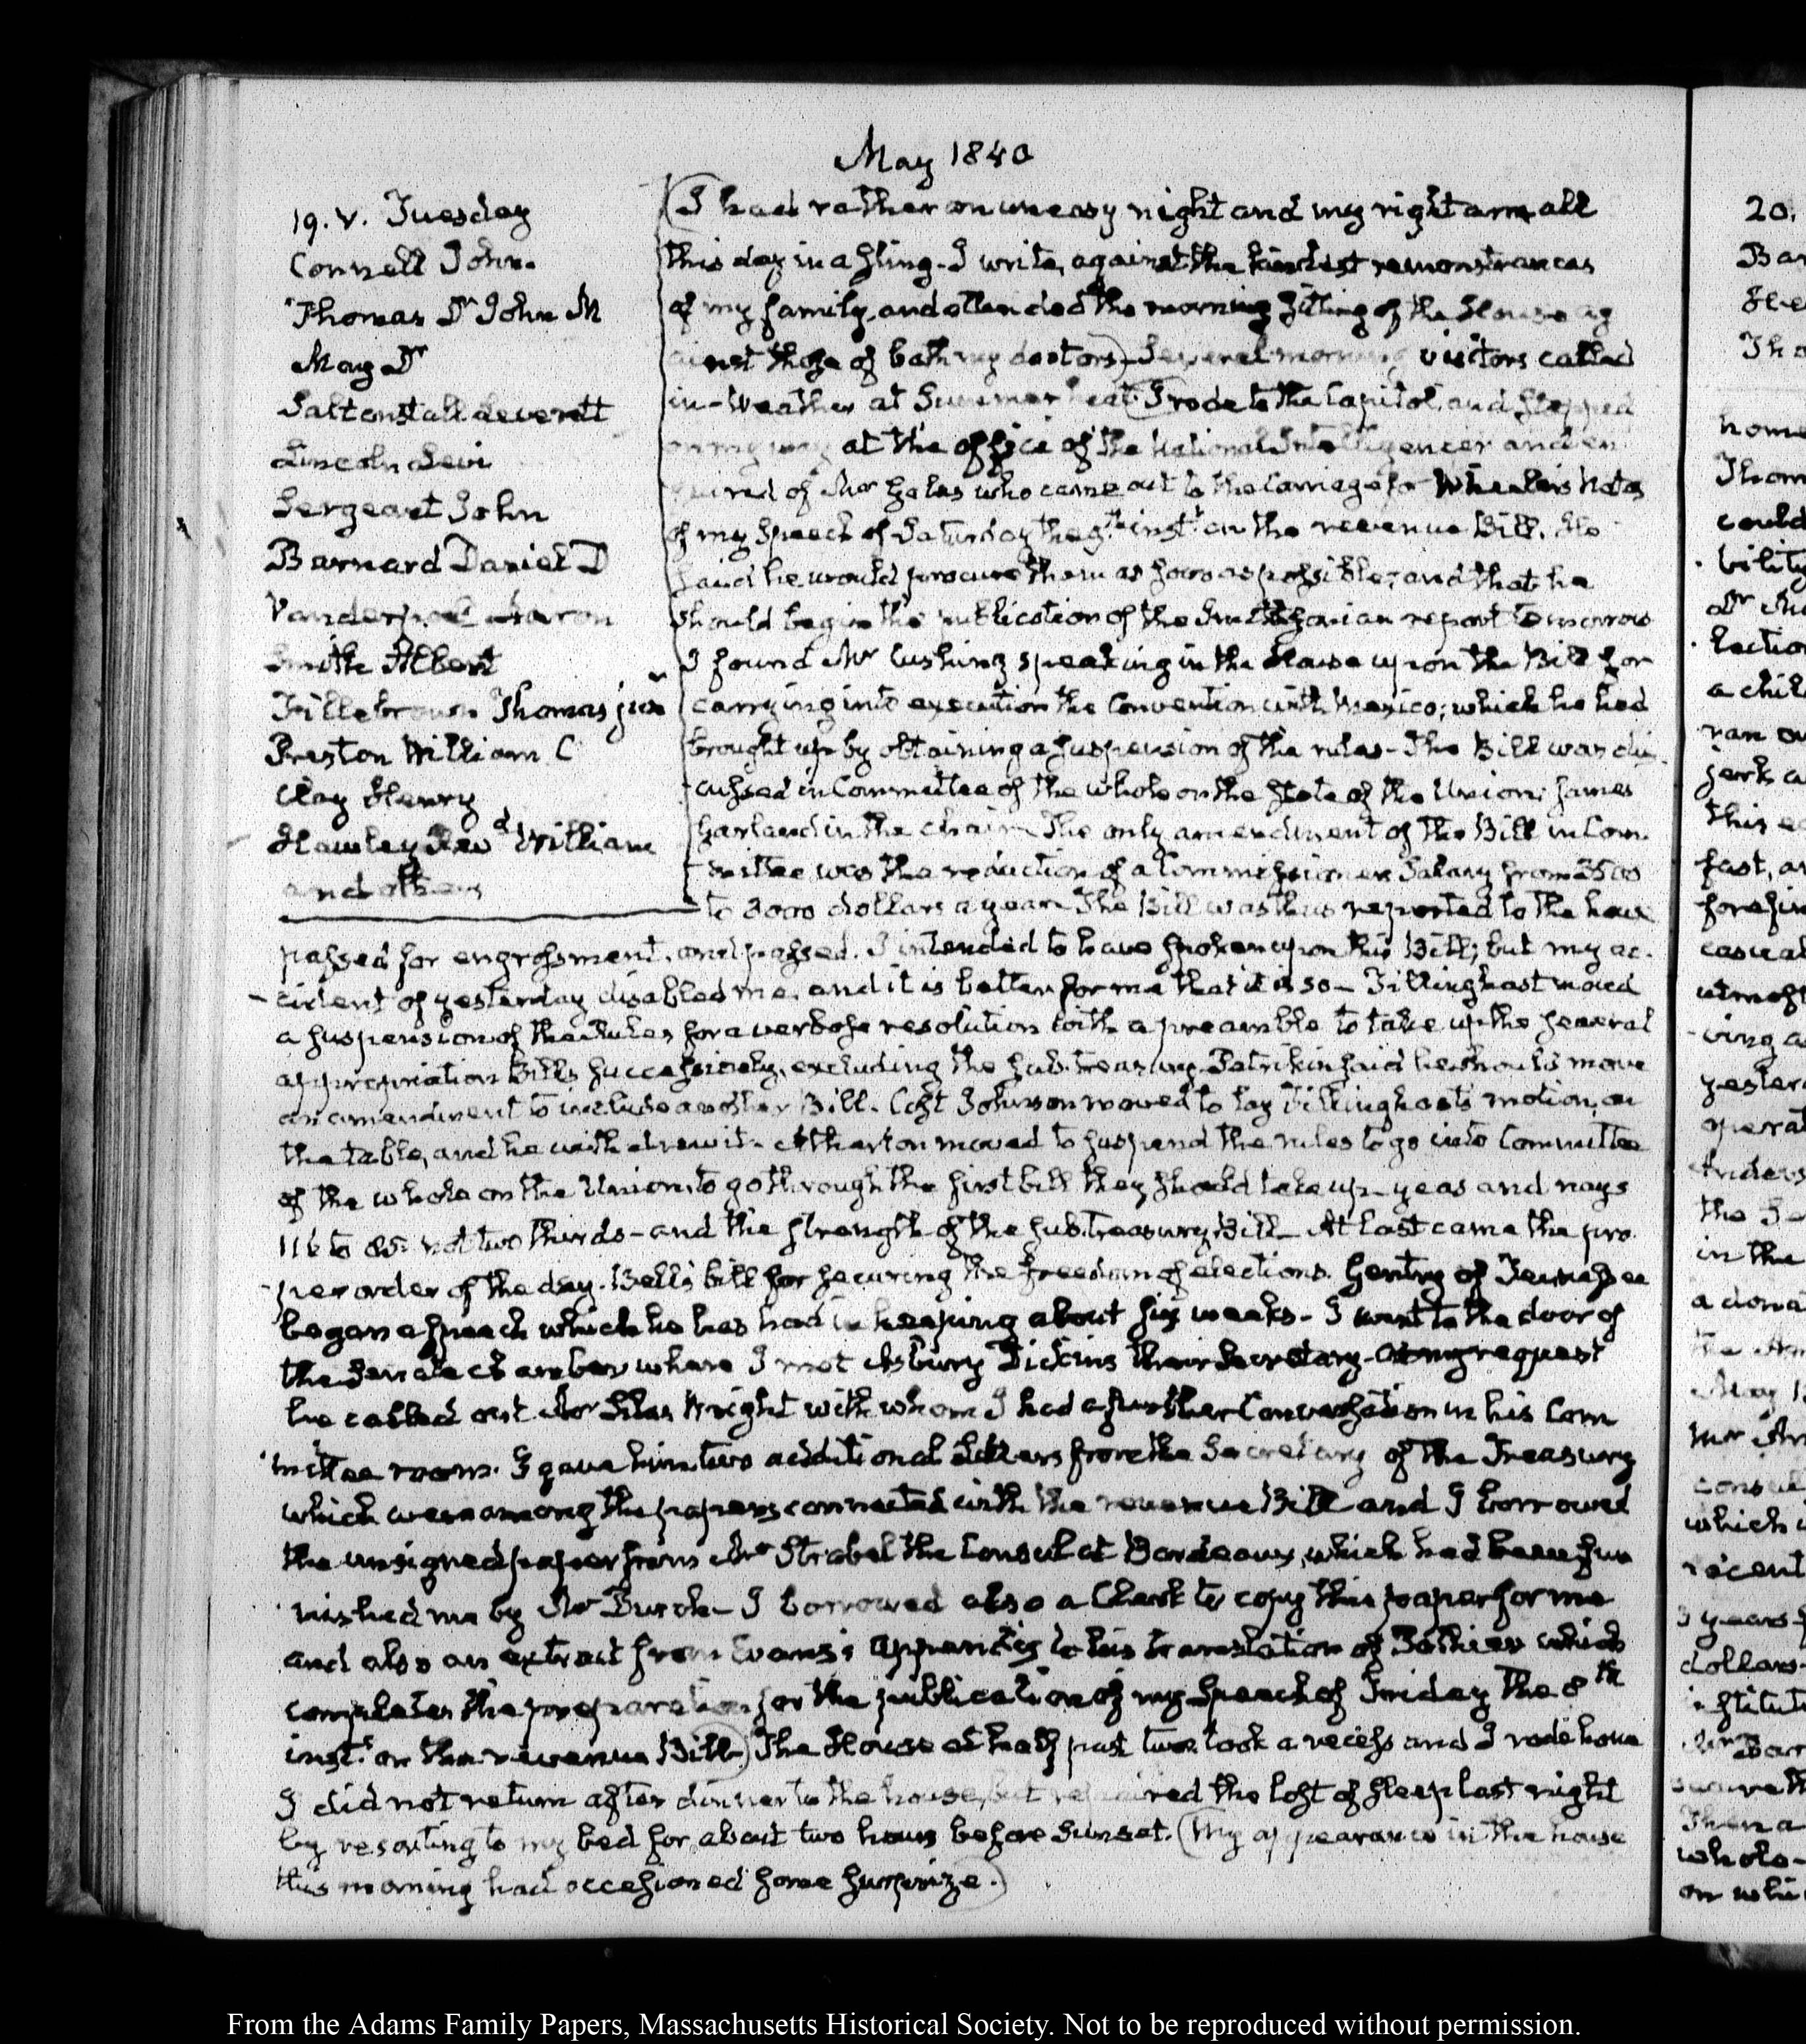 May 1840
19. V. Tuesday
Connell John.
Thomas Dr John M
May Dr
Saltonstall Leverett
Lincoln Levi
Sergeant John
Barnard Daniel D
Vanderpoel Aaron
Smith Albert
Fillebrown Thomas junr
Preston William C
Clay Henry
Hawley Revd William
and others
I had rather an uneasy night and my right arm all
this day in a sling. I write, against the kindest remonstrances
of my family, and attended the morning sitting of the House ag
ainst those of both my doctors) Several morning visitors called
in - Weather at Summer heat (I rode to the Capitol, and stopped
on my way at the office of the National Intelligencer and en
quired of Mr Gales who came out to the Carriage for Wheeler's Notes
of my Speech of Saturday the 9th inst: on the revenue Bill. He
said he would procure them as soon as possible, and that he
should begin the publication of the Smithsonian report to-morrow
I found Mr Cushing speaking in the House upon the Bill for
carrying into execution the Convention with Mexico; which he had
brought up by obtaining a suspension of the rules - The Bill was dis
cussed in Committee of the whole on the state of the Union: James
Garland in the chair - The only amendment of the Bill in Com
mittee was the reduction of a Commissioner Salary from 3500
to 3000 dollars a year - The Bill was thus reported to the house
passed for engrossment, and passed. I intended to have spoken upon this Bill; but my ac-
cident of yesterday disabled me. and it is better for me that it is so - Tillinghast moved
a suspension of the Rules for a verbose resolution with a preamble to take up the general
appropriation Bills successively, excluding the sub. treasury. Petrikin said he should move
an amendment to include another Bill. Cost Johnson moved to lay Tillinghast's motion, on
the table, and he withdrew it - Atherton moved to suspend the rules to go into Committee
of the whole on the Union, to go through the first bill they should take up - yeas and nays
116 to 85. not two thirds - and the strength of the Sub. treasury Bill - At last came the pro
per order of the day. Bell's bill for securing the freedom of elections. Gentry of Tennessee
began a speech which he has had in keeping about six weeks - I went to the door of
the Senate chamber where I met Asbury Dickins their Secretary - At my request
he called out Mr Silas Wright with whom I had a further Conversation in his Com
mittee room. I gave him two additional Letters from the Secretary of the Treasury
which were among the papers connected with the revenue Bill and I borrowed
the unsigned paper from Mr Strobel the Consul at Bordeaux, which had been fur
nished me by Mr Burch - I borrowed also a Clerk to copy this paper for me
and also an extract from Evans's appendix to his translation of Pothier which
completes the preparation for the publication of my Speech of Friday the 8th
inst: on the revenue Bill.) The House at half past two took a recess and I rode home
I did not return after dinner to the house, but repaired the loss of sleep last night
by resorting to my bed for about two hours before Sunset. (My appearance in the house
this morning had occasioned some surprize.)
20.
From the Adams Family Papers, Massachusetts Historical Society. Not to be reproduced without permission.